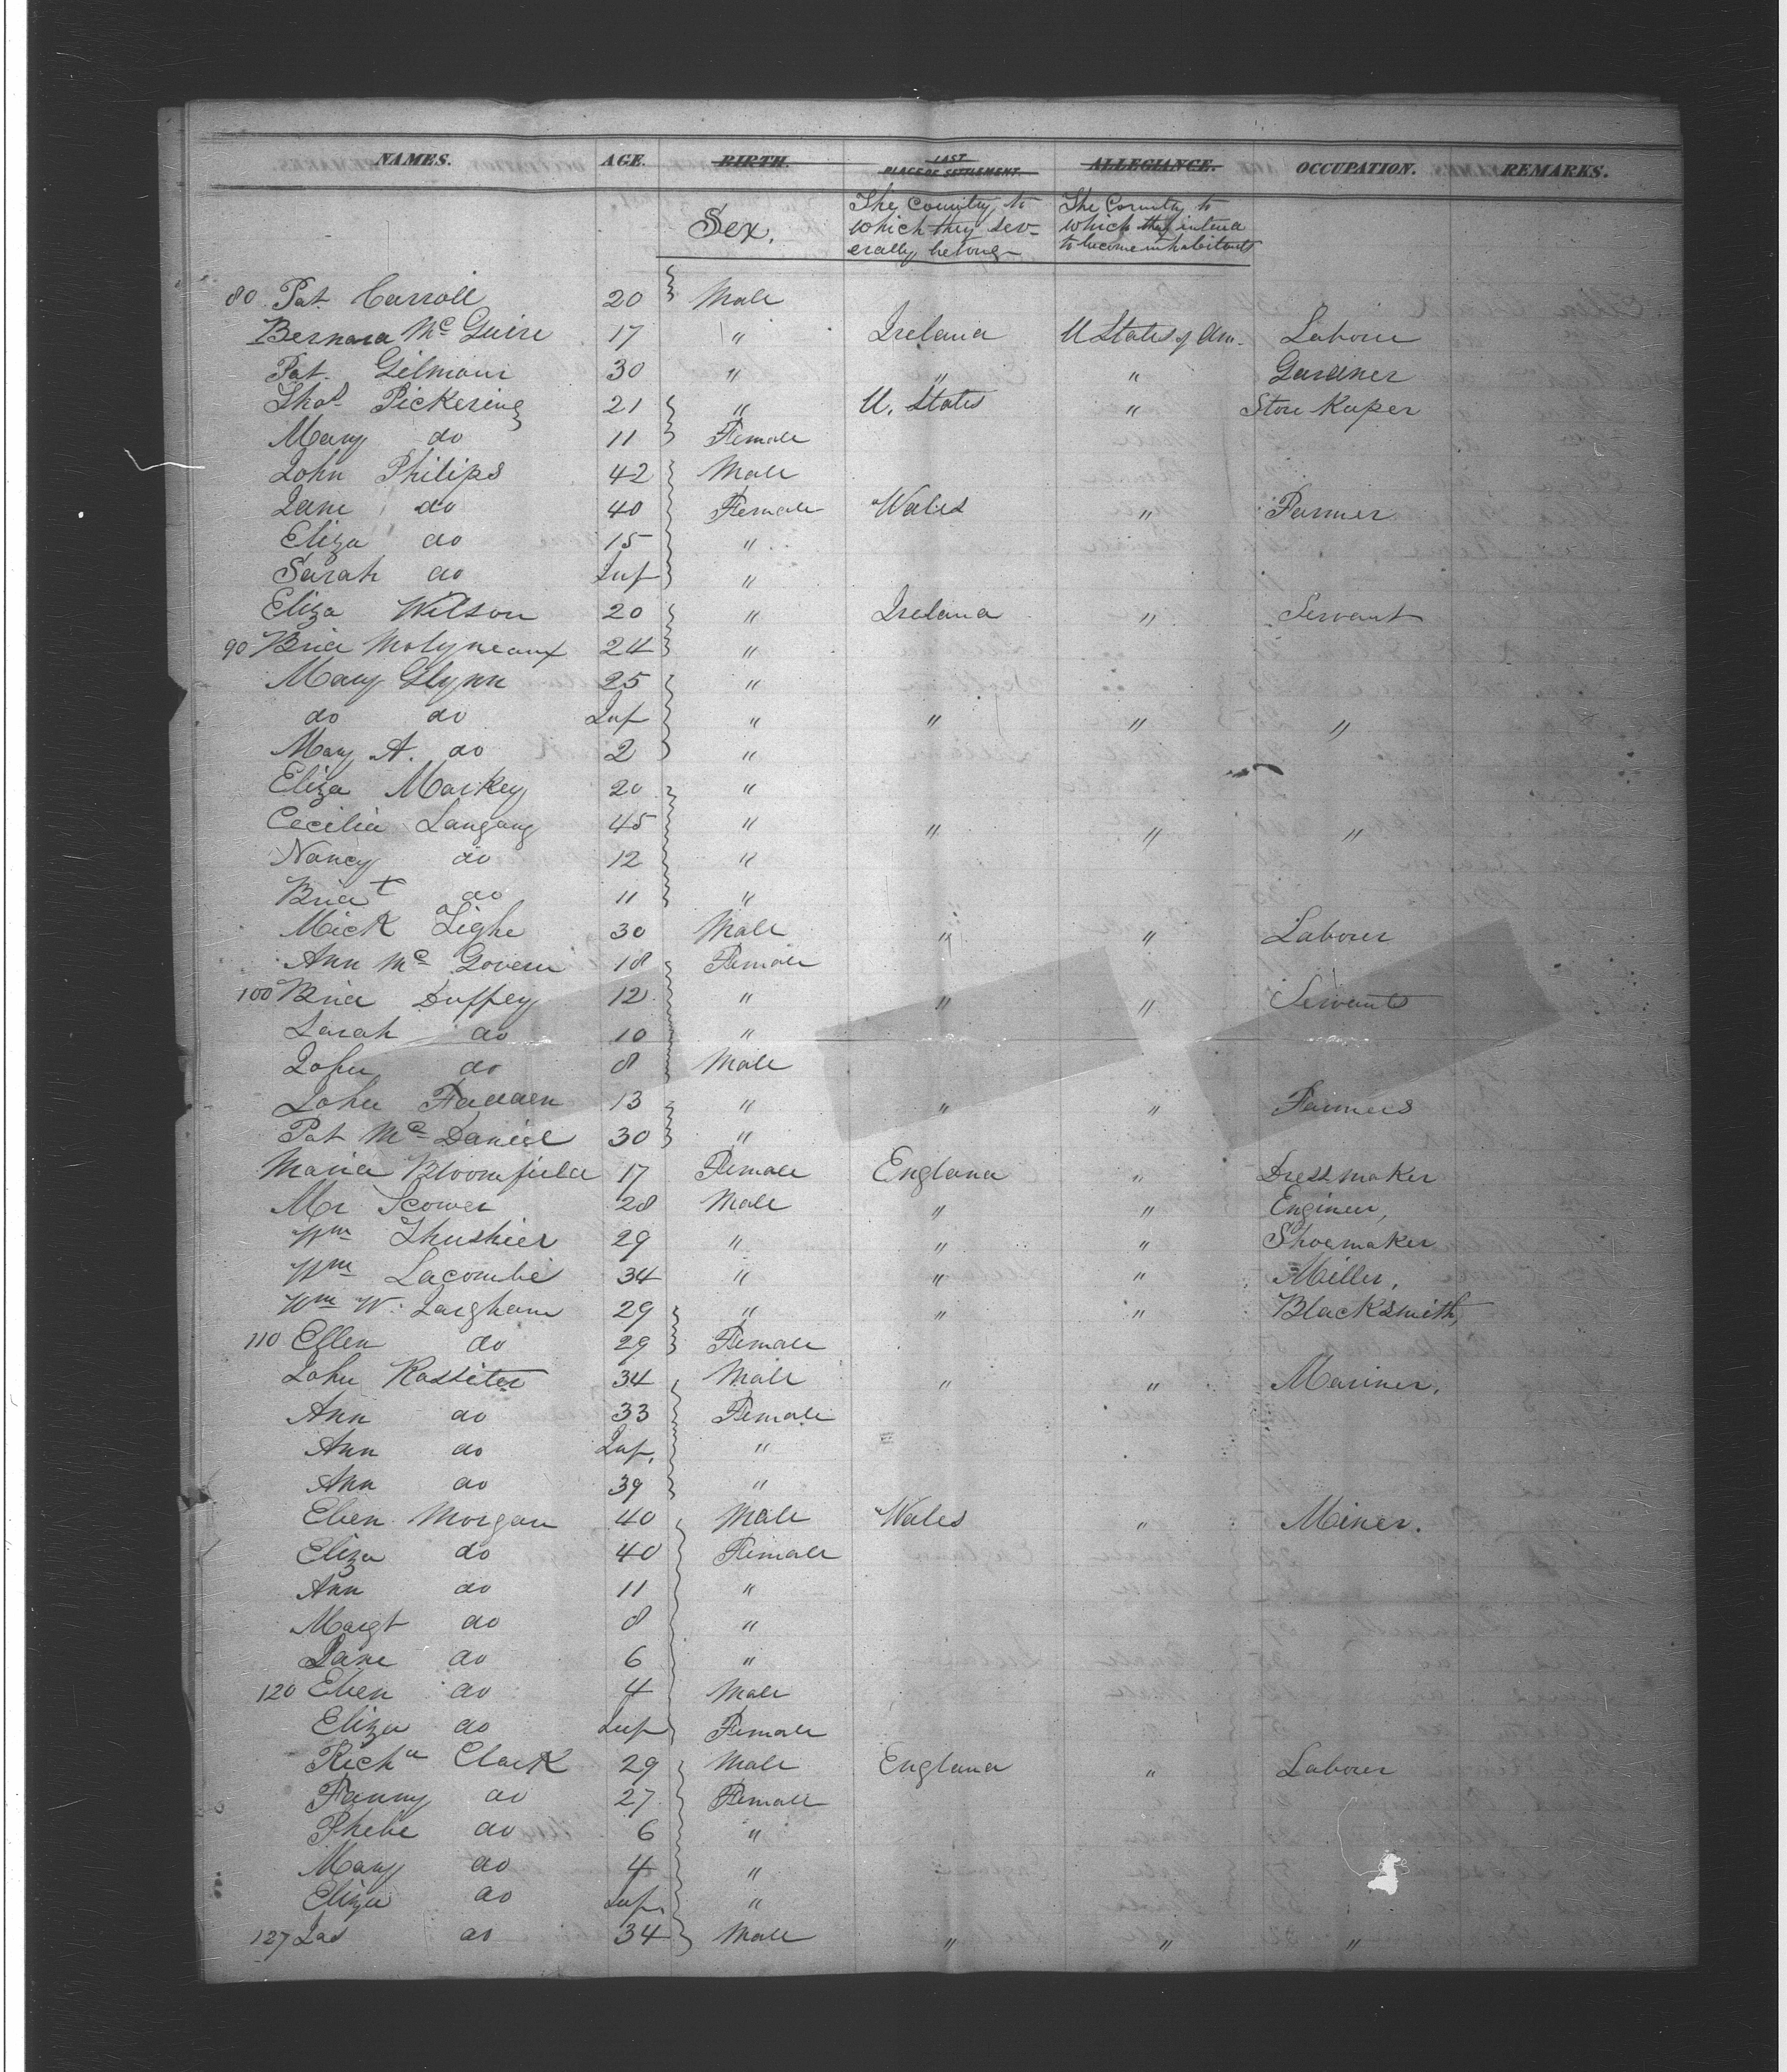 NAMES. AGE. BIRTH. LAST PLACE OF SETTLEMENT. ALLEGIANCE. OCCUPATION. REMARKS.
Sex. The Country to which they severally belong The Country to which they intend to become inhabitants
80 Pat. Carroll 20 Male
Bernard Mc Guire 17 " Ireland U States of Am. Labourer
Pat. Gilmour 30 " " " Gardner
Thos. Pickering 21 " U. States " Store Keeper
Mary do 11 Female
John Philips 42 Male
Jane do 40 Female Wales " Farmer
Eliza do 15 "
Sarah do Inf "
Eliza Wilson 20 " Ireland " Servant
90 Brid Molyneaux 24 "
Mary Glynn 25 "
do do Inf " " " "
Mary A. do 2 "
Eliza Markey 20 "
Cecilia Langang 45 " " " "
Nancy do 12 "
Bridt do 11 "
Mick Tighe 30 Male " " Labourer
Ann Mc Govern 18 Female
100 Brid Duffey 12 " " " Servants
Sarah do 10 "
John do 8 Male
John Fadden 13 " " " Farmers
Pat Mc Daniel 30 "
Maria Bloomfield 17 Female England " Dressmaker
Mr Scower 28 Male " " Engineer,
Wm Thushier 29 " " " Shoemaker
Wm Lacombe 34 " " " Miller,
Wm W. Langham 29 " " " Blacksmith,
110 Ellen do 29 Female
John Rossiter 34 Male " " Mariner.
Ann do 33 Female
Ann do Inf. "
Ann do 39 "
Eben Morgan 40 Male Wales " Miner.
Eliza do 40 Female
Ann do 11 "
Margt do 8 "
Jane do 6 "
120 Eben do 4 Male
Eliza do Inf Female
Richd Clark 29 Male England " Labourer
Fanny do 27 Female
Phebe do 6 "
Mary do 4 "
Eliza do Inf. "
127 Jas do 34 Male " " "